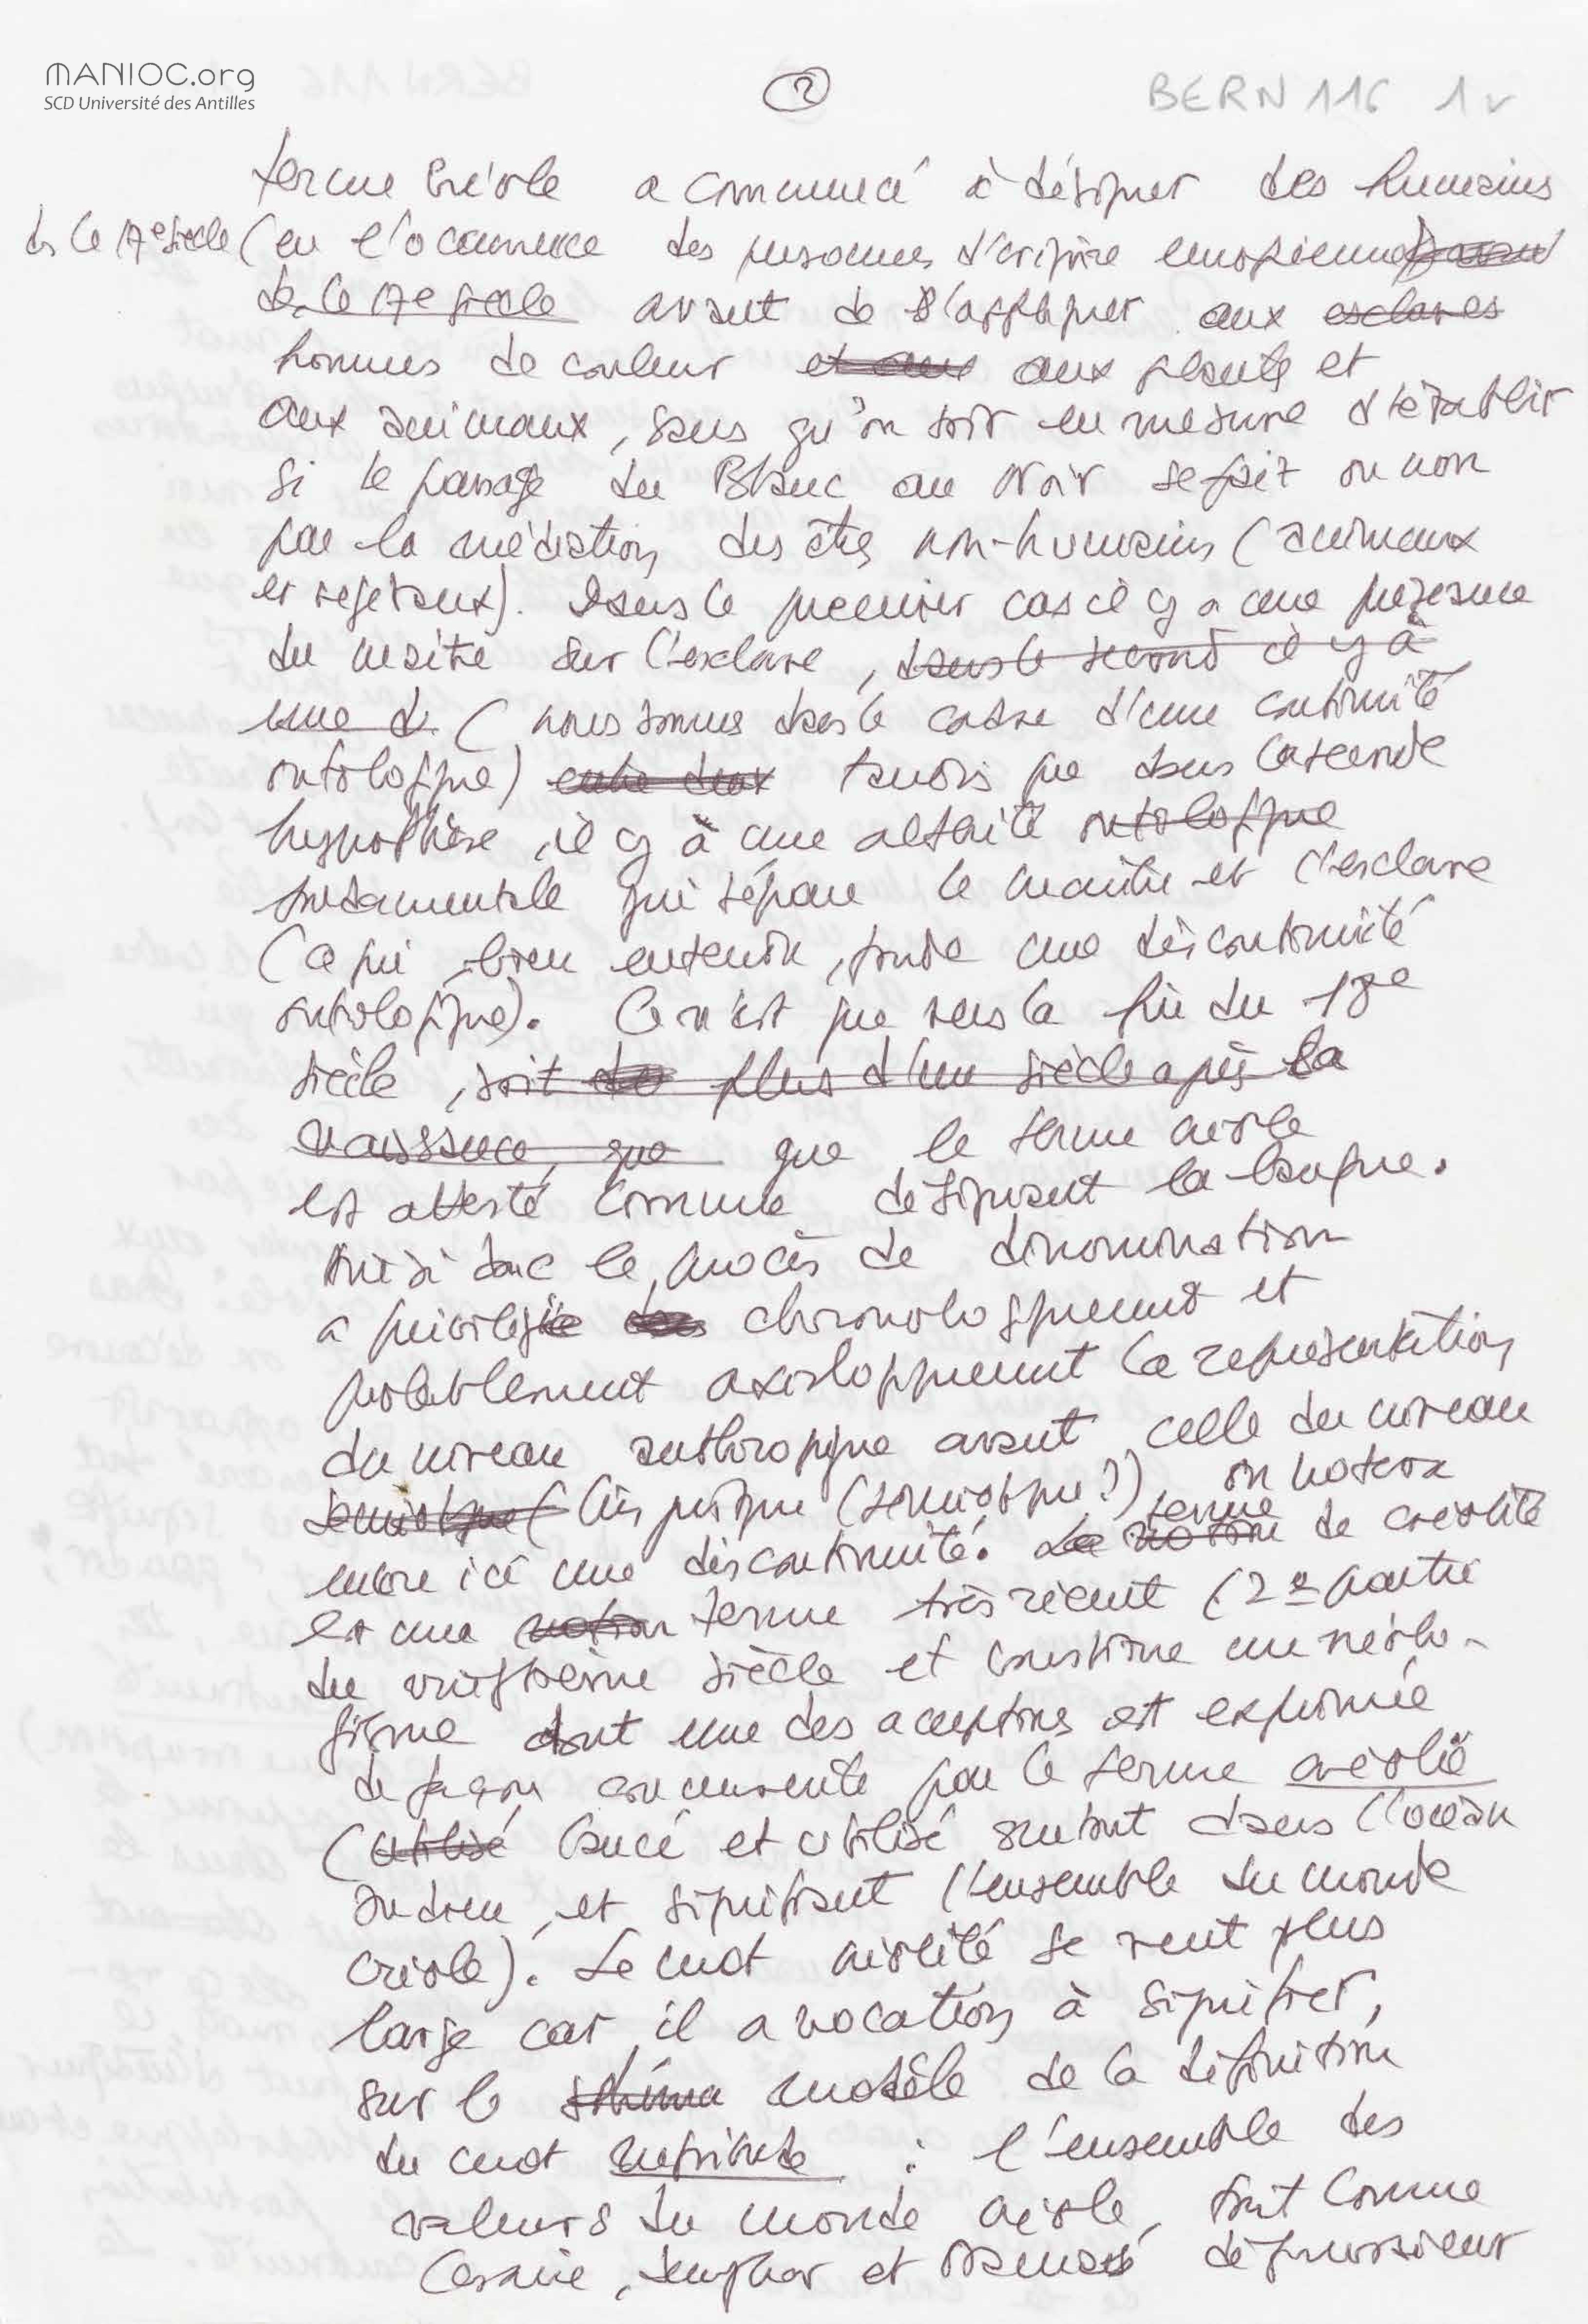 MANIOC.org
SCD Université des Antilles
2
BERN 116 1v
terme créole a commencé à désigner des humains
ds le 17e siècle (en l'occurrence des personnes d'origine européenne)
ds le 17e siècle avant de s'appliquer aux esclaves
hommes de couleur et aux aux plantes et
aux animaux, sans qu'on soit en mesure d'établir
si le passage du Blanc au Noir se fait ou non
par la médiation des êtres non-humains (animaux
et végétaux). Dans le premier cas il y a une préséance
du maître sur l'esclave, dans le second il y a
une d. (nous sommes dans le cadre d'une continuité
ontologique) entre deux tandis que dans la seconde
hypothèse, il y a une altérité ontologique
fondamentale qui sépare le maître et l'esclave
(ce qui, bien entendu, fonde une discontinuité
ontologique). Ce n'est que vers la fin du 18e
siècle, soit plus d'un siècle après la
naissance, que que le terme créole
est attesté comme désignant la langue.
Ainsi donc le procès de dénomination
a privilégié chronologiquement et
probablement axiologiquement la représentation
du niveau anthropique avant celle du niveau
semiotique (linguistique (semiotique?), on notera
encore ici une discontinuité. La notion terme de créolité
est une notion terme très récent (2e partie
du vingtième siècle et constitue un néolo-
gisme dont une des acceptions est exprimée
de façon concurrente par le terme créolie
(utilisé lancé et utilisé surtout dans l'océan
Indien, et signifiant l'ensemble du monde
créole). Le mot créolité se veut plus
large car il a vocation à signifier,
sur le schéma modèle de la définition
du mot négritude : l'ensemble des
valeurs du monde créole, tout comme
Césaire, Senghor et Damas définissaient